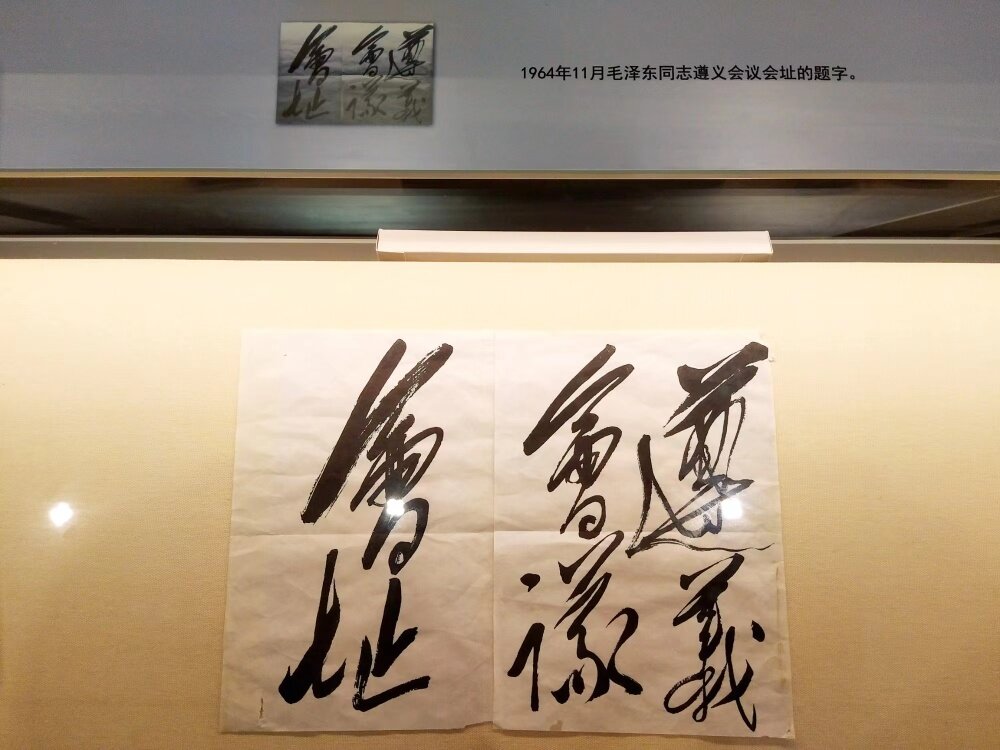 會 會 遵
址 議 義
1964年11月毛泽东同志遵义会议会址的题字。
遵義
會議
會址